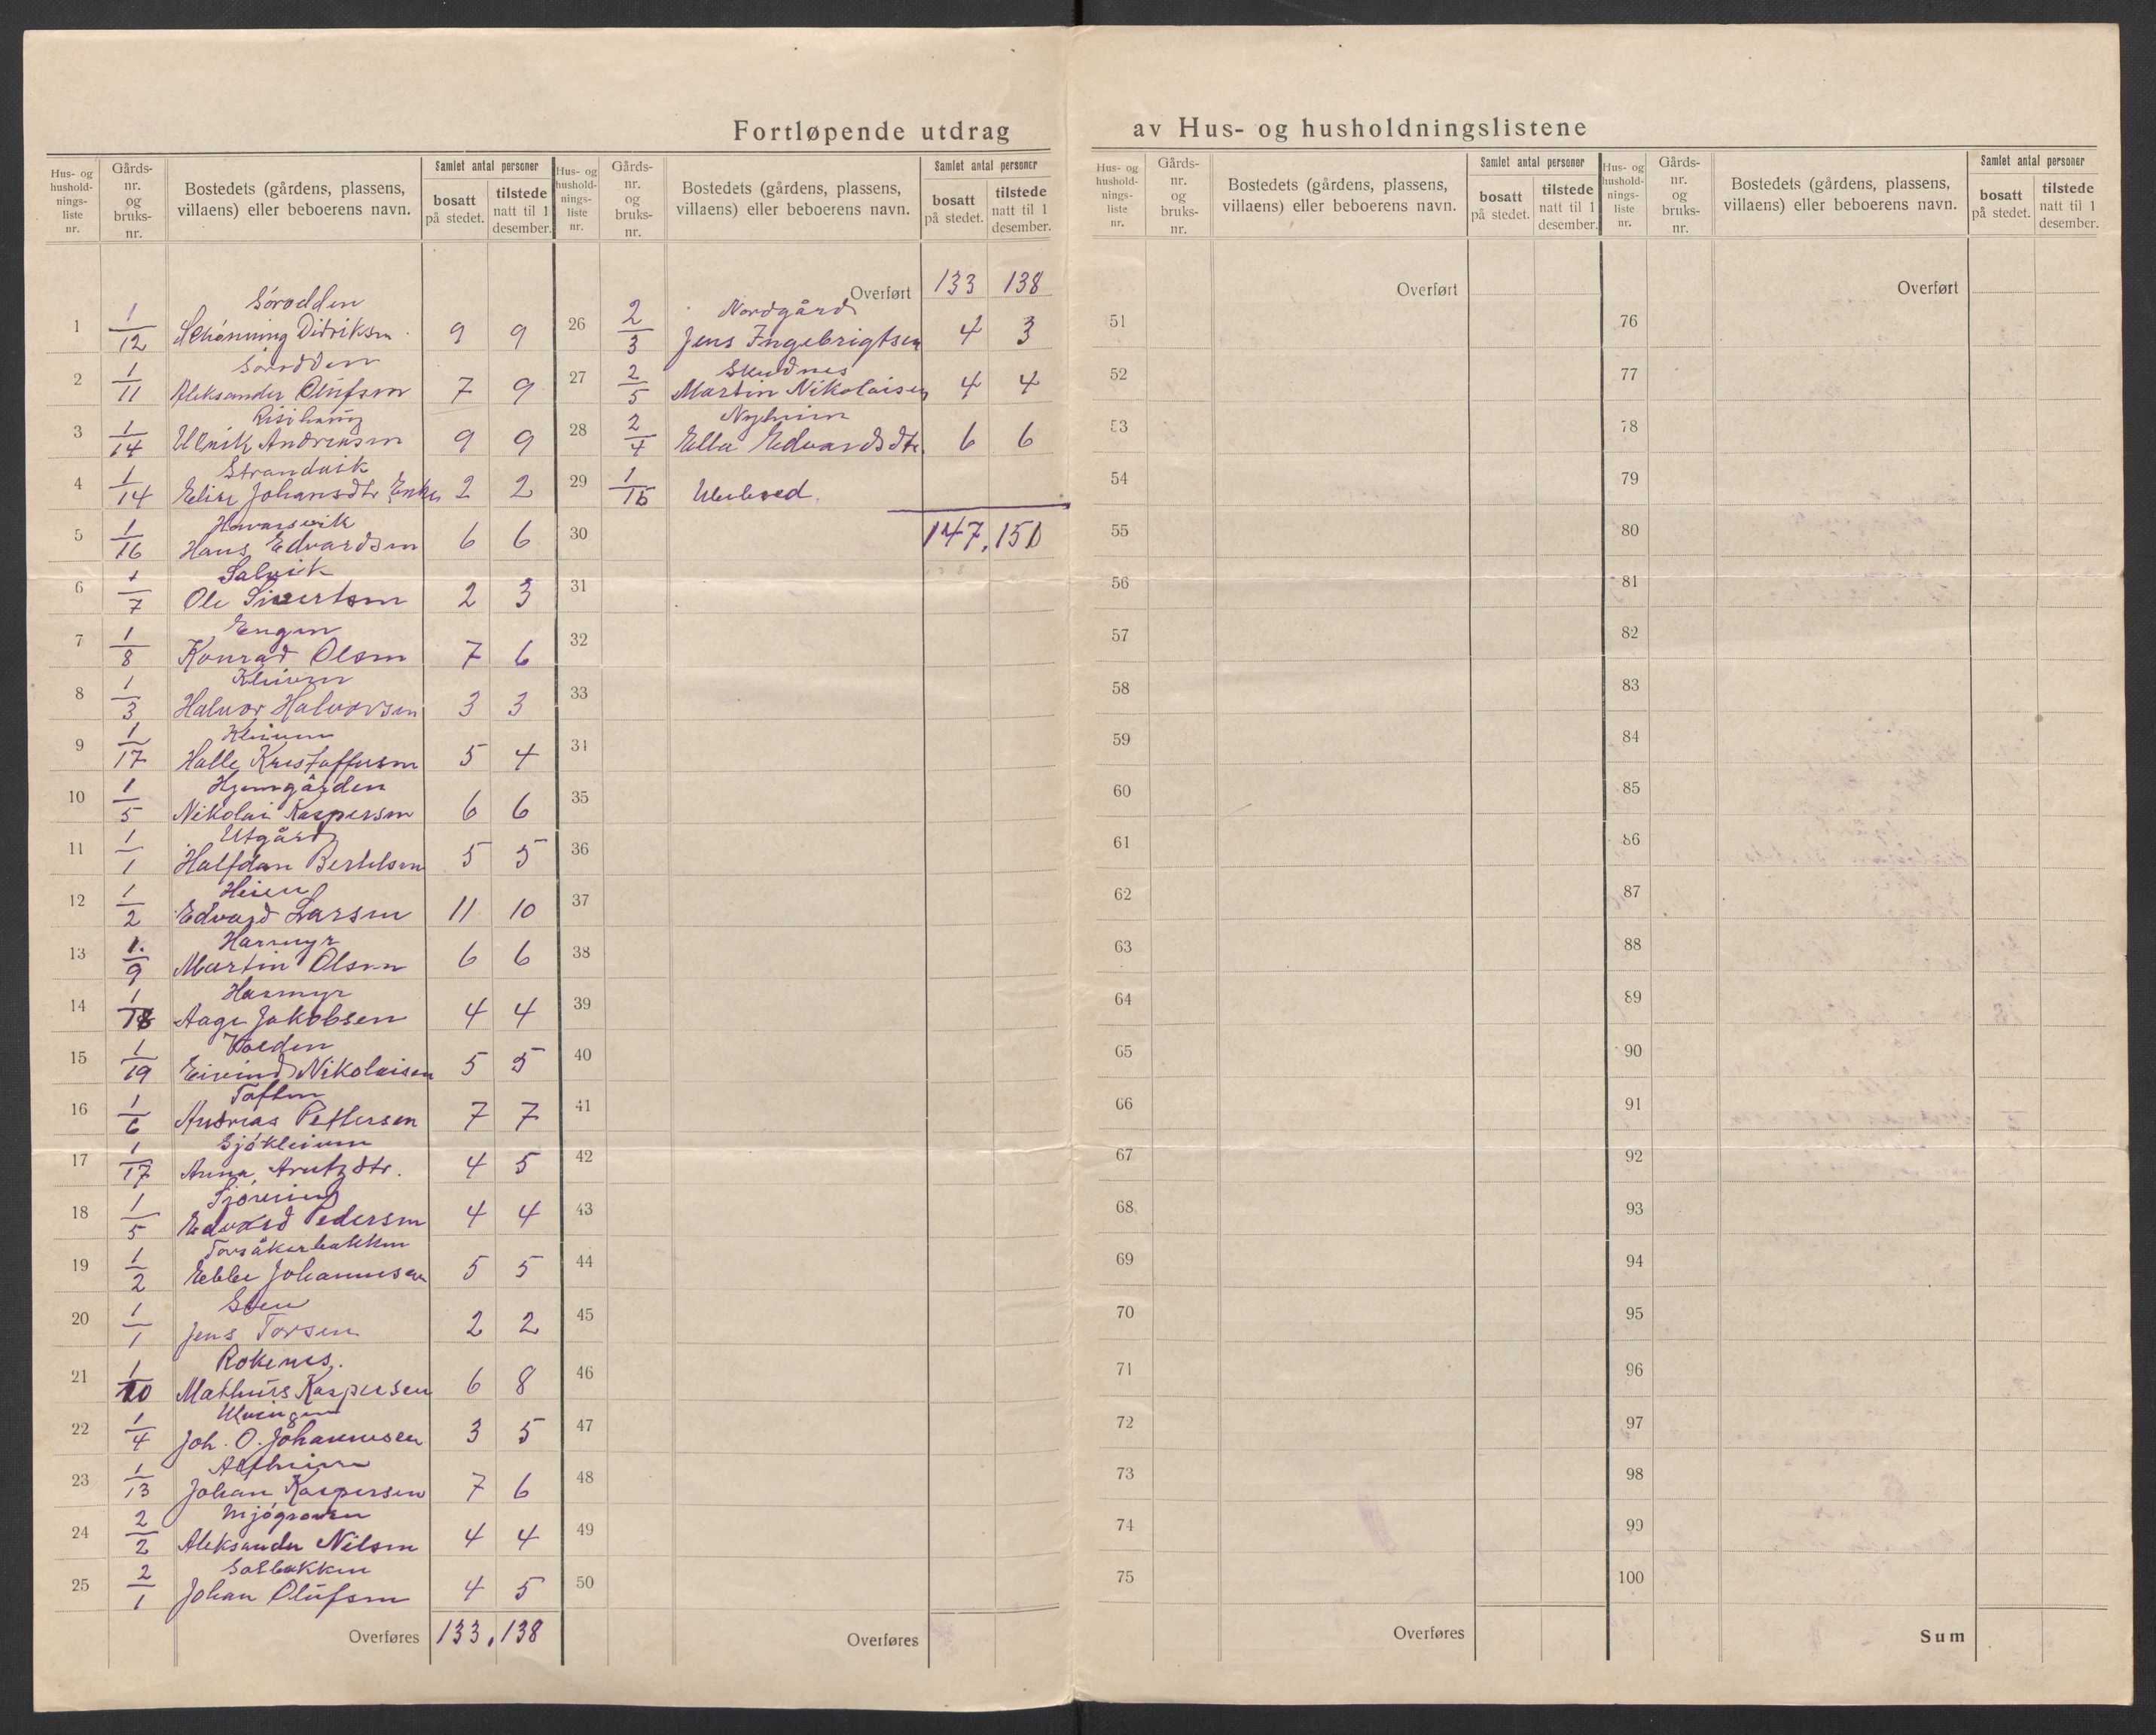 Fortløpende utdrag av Hus- og husholdningslistene
Hus- og hushold-nings-liste nr. Gårds-nr. og bruks-nr. Bostedets (gårdens, plassens, villaens) eller beboerens navn. Samlet antal personer bosatt på stedet. tilstede natt til 1 desember.
Sørodden
1 1/12 Schønning Didriksen 9 9
Sørodden
2 1/11 Aleksander Olufsen 7 9
3 1/14 Ulrik Andreasen 9 9
Strandvik
4 1/14 Elise Johansdtr Enke 2 2
Havarsvik
5 1/16 Hans Edvardsen 6 6
Salvik
6 1/7 Ole Sivertsen 2 3
Engen
7 1/8 Konrad Olsen 7 6
Kleiven
8 1/3 Halvor Halvorsen 3 3
Kleiven
9 1/17 Halle Kristoffersen 5 4
Hjemgården
10 1/5 Nikolai Kaspersen 6 6
Utgård
11 1/1 Halfdan Bertelsen 5 5
Heien
12 1/2 Edvard Larsen 11 10
Harmyr
13 1/9 Martin Olsen 6 6
Harmyr
14 1/18 Aage Jakobsen 4 4
Volden
15 1/19 Eivind Nikolaisen 5 5
Toften
16 1/6 Andreas Pettersen 7 7
Sjøkleiven
17 1/17 Anna Arntzdtr. 4 5
18 1/5 Edvard Pedersen 4 4
Torsåkerbakken
19 1/2 Ebbe Johannesen 5 5
Sten
20 1/1 Jens Torsen 2 2
Rokenes.
21 1/20 Mathias Kaspersen 6 8
Kvingen
22 1/4 Joh. O. Johannesen 3 5
Alfheim
23 1/13 Johan Kaspersen 7 6
Mjøgraven
24 2/2 Aleksander Nilsen 4 4
Solbakken
25 2/1 Johan Olufsen 4 5
Overføres 133. 138
Hus- og hushold-nings-liste nr. Gårds-nr. og bruks-nr. Bostedets (gårdens, plassens, villaens) eller beboerens navn. Samlet antal personer bosatt på stedet. tilstede natt til 1 desember.
Overført 133 138
Nordgård
26 2/3 Jens Ingebrigtsen 4 3
Skudnes
27 2/5 Martin Nikolaisen 4 4
Nyheim
28 2/4 Ella Edvardsdtr. 6 6
29 1/15 Ubeboed.
30 147. 151
31
32
33
34
35
36
37
38
39
40
41
42
43
44
45
46
47
48
49
50
Overføres
Hus- og hushold-nings-liste nr. Gårds-nr. og bruks-nr. Bostedets (gårdens, plassens, villaens) eller beboerens navn. Samlet antal personer bosatt på stedet. tilstede natt til 1 desember.
Overført
51
52
53
54
55
56
57
58
59
60
61
62
63
64
65
66
67
68
69
70
71
72
73
74
75
Overføres
Hus- og hushold-nings-liste nr. Gårds-nr. og bruks-nr. Bostedets (gårdens, plassens, villaens) eller beboerens navn. Samlet antal personer bosatt på stedet. tilstede natt til 1 desember.
Overført
76
77
78
79
80
81
82
83
84
85
86
87
88
89
90
91
92
93
94
95
96
97
98
99
100
Sum